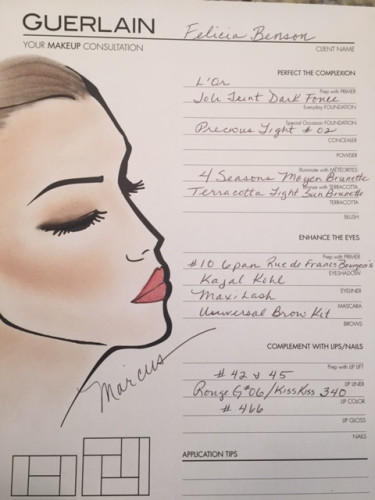 GUERLAIN
YOUR MAKEUP CONSULTATION
Felicia Benson
CLIENT NAME
PERFECT THE COMPLEXION
L'Or
Prep with PRIMER
Joli Teint Dark Foncé
Everyday FOUNDATION
Special Occasion FOUNDATION
Precious Light # 02
CONCEALER
POWDER
Illuminate with MÉTÉORITES
4 Seasons Moyen Brunette
Bronze with TERRACOTTA
Terracotta Light Sun Brunette
TERRACOTTA
BLUSH
ENHANCE THE EYES
Prep with PRIMER
#10 6 pan Rue de Francs Bourgeois
EYESHADOW
Kajal Kohl
EYELINER
Maxi Lash
MASCARA
Universal Brow Kit
BROWS
COMPLEMENT WITH LIPS/NAILS
Prep with LIP LIFT
# 42 & 45
LIP LINER
Rouge G #06/KissKiss 340
LIP COLOR
# 466
LIP GLOSS
NAILS
APPLICATION TIPS
Marcus